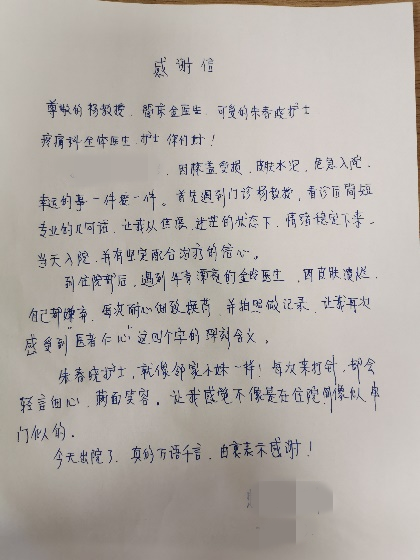 感谢信
尊敬的杨教授、管床金医生、可爱的朱春晓护士
疼痛科全体医生、护士 你们好！
因膝盖受损，皮肤水泡，危急入院，
幸运的事一件接一件。首先遇到门诊杨教授，看诊后简短
专业的几句话，让我从焦虑、迷茫的状态下，情绪稳定下来。
当天入院，并有坚定配合治疗的信心。
到住院部后，遇到年青漂亮的金医生，因皮肤溃烂，
自己都嫌弃，每次耐心细致换药，并拍照做记录，让我再次
感受到"医者仁心"这四个字的深刻含义。
朱春晓护士，就像邻家小妹一样！每次来打针，都会
轻言细心，满面笑容。让我感觉不像是在住院倒像似串
门似的。
今天出院了，真的万语千言，由衷表示感谢！